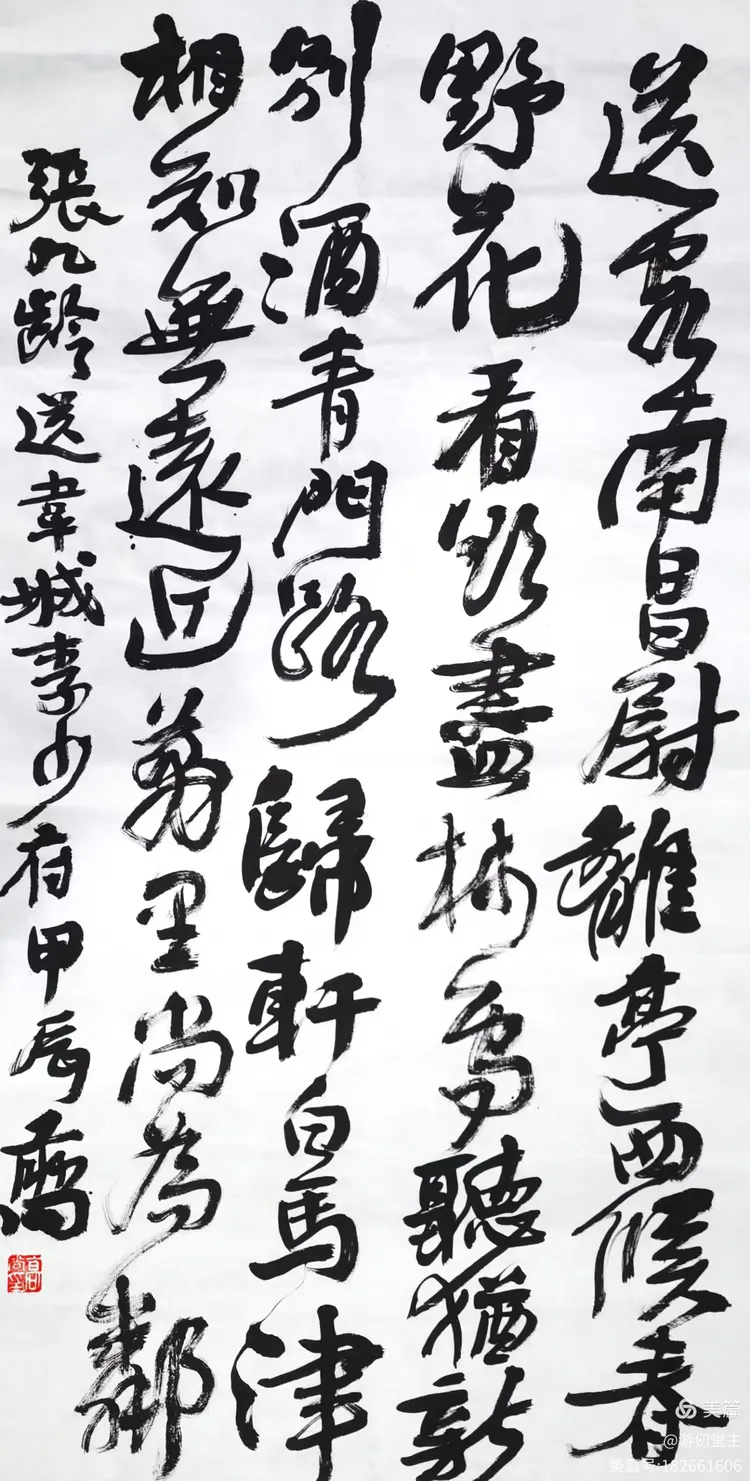 送客南昌尉離亭西候春
野花看欲盡林鳥聽猶新
別酒青門路歸軒白馬津
相知無遠近萬里尚為鄰
張九齡送韋城李少府甲辰
美篇
@游仞堂主
美篇号:182661606